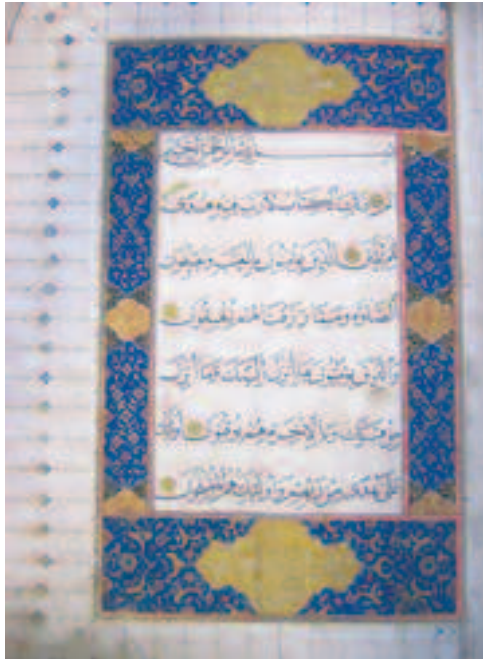 بسم الله الرحمن الرحيم
الم ذلك الكتاب لا ريب فيه هدى
للمتقين الذين يؤمنون بالغيب ويقيمون
الصلوة ومما رزقناهم ينفقون
والذين يؤمنون بما أنزل إليك وما أنزل
من قبلك وبالآخرة هم يوقنون أولئك
على هدى من ربهم وأولئك هم المفلحون